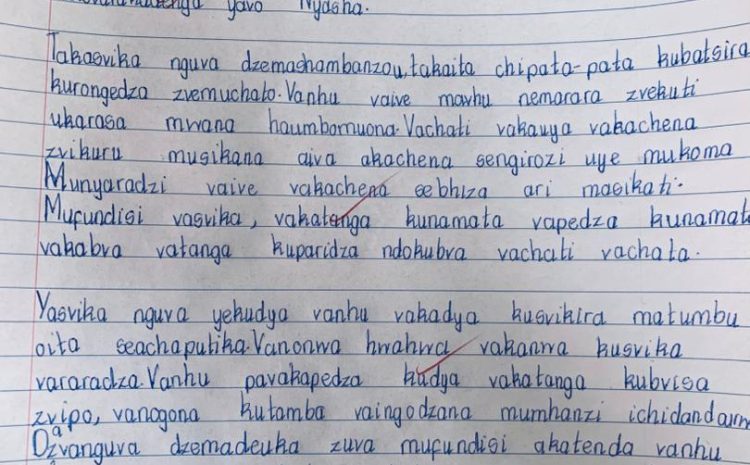 yavo Nyasha.
Takasvika nguva dzemashambanzou, takaita chipata-pata kubatsira
kurongedza zvemuchato. Vanhu vaive mavhu nemarara zvekuti
ukarasa mwana haumbomuona. Vachati vakauya vakachena
zvikuru musikana aiva akachena sengirozi uye mukoma
Munyaradzi vaive vakachena sebhiza ari masikati.
Mufundisi vasvika, vakatanga kunamata vapedza kunamata
vakabva vatanga kuparidza ndokubva vachati vachata.
Yasvika nguva yekudya vanhu vakadya kusvikira matumbu
oita seachaputika. Vanonwa hwahwa vakanwa kusvika
vararadza. Vanhu pavakapedza kudya vakatanga kubvisa
zvipo, vanogona kutamba vaingodzana mumhanzi
Dzvanguva dzemadeuka zuva mufundisi akatenda vanhu